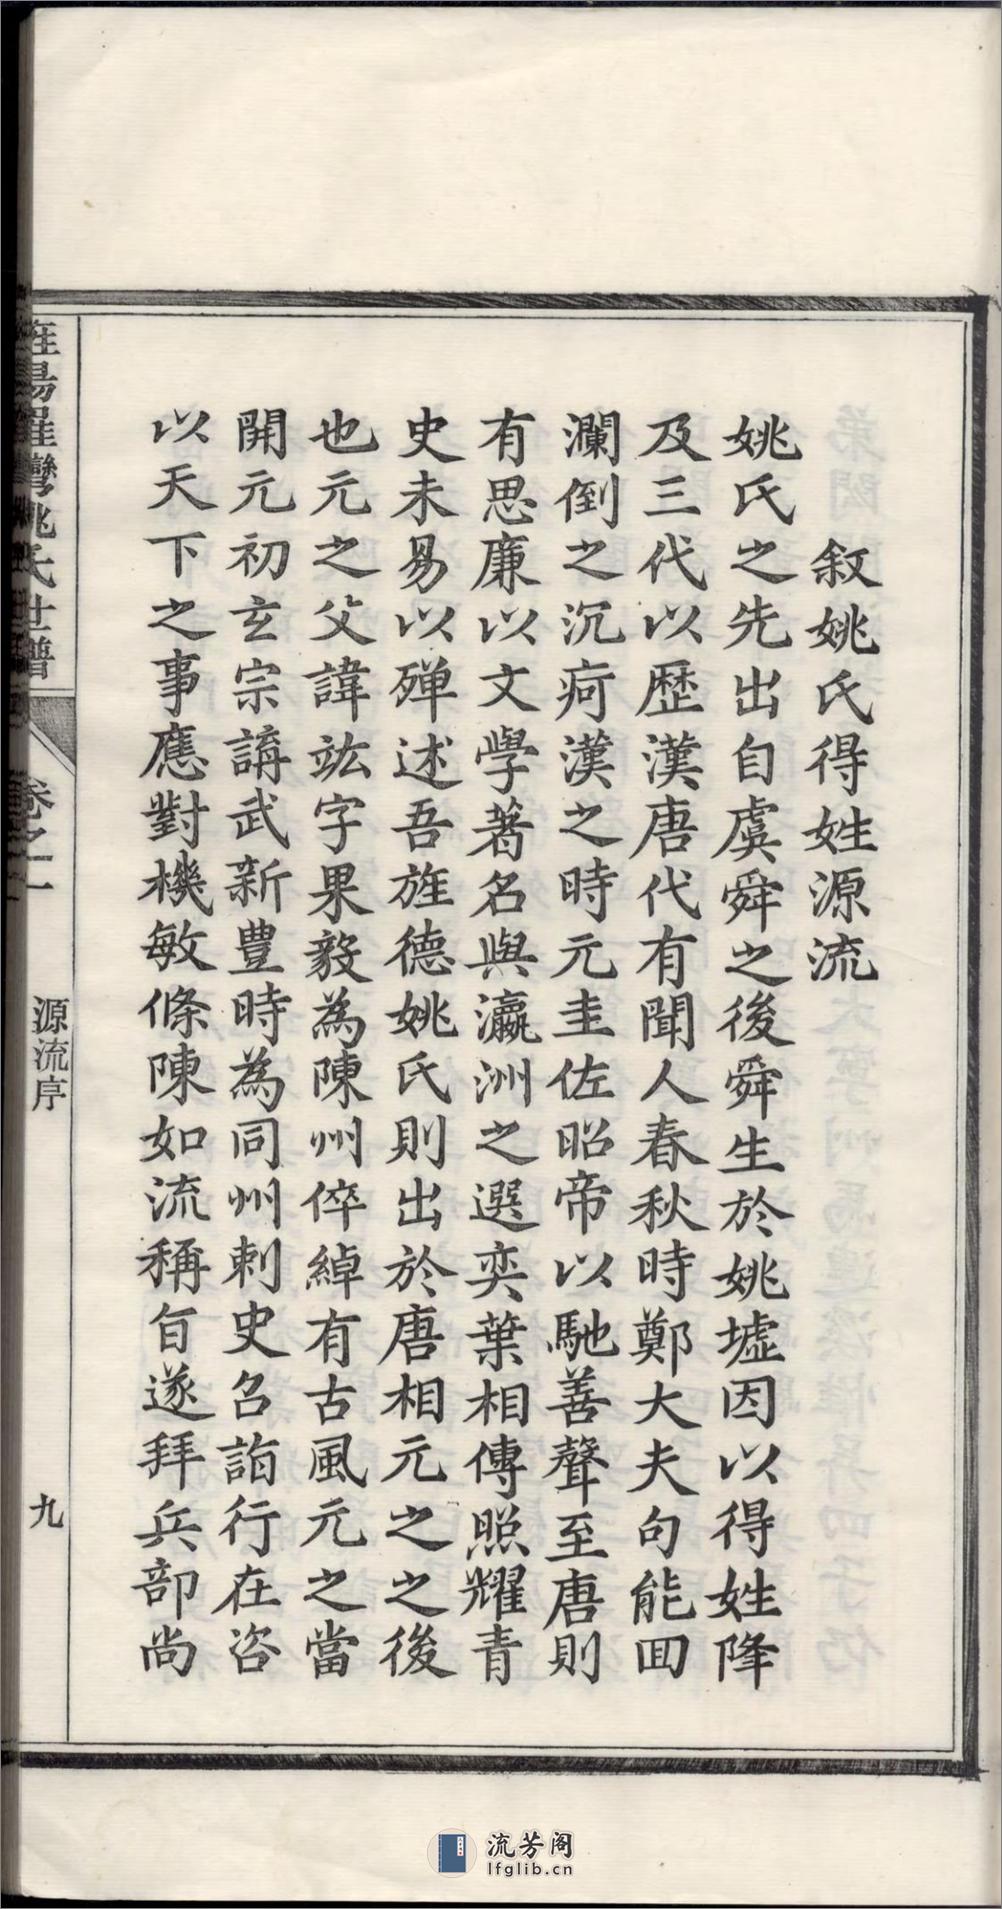 敘姚氏得姓源流
姚氏之先出自虞舜之後舜生於姚墟因以得姓降
及三代以歷漢唐代有聞人春秋時鄭大夫句能回
瀾倒之沉疴漢之時元圭佐昭帝以馳善聲至唐則
有思廉以文學著名與瀛洲之選奕葉相傳照耀青
史未易以殫述吾旌德姚氏則出於唐相元之之後
也元之父諱訟字果毅為陳州倅綽有古風元之當
開元初玄宗講武新豐時為同州刺史召詣行在咨
以天下之事應對機敏條陳如流稱旨遂拜兵部尚
旌陽羅灣姚氏世譜
卷之一
源流序
九
流芳阁
lfglib.cn